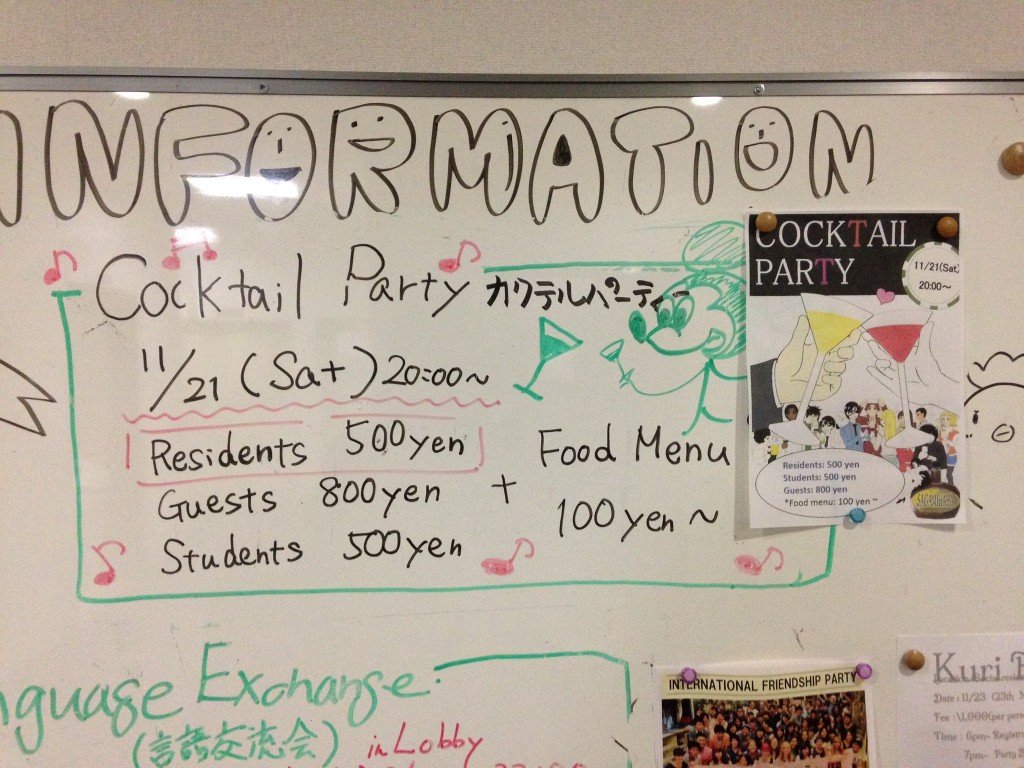 INFORMATION
Cocktail Party カクテルパーティー
11/21 (Sat) 20:00~
Residents 500yen
Guests 800yen + Food Menu
Students 500yen 100yen~
COCKTAIL
PARTY
11/21(Sat)
20:00~
Residents: 500 yen
Students: 500 yen
Guests: 800 yen
*Food menu: 100 yen ~
Exchange
(言語交流会) in Lobby
INTERNATIONAL FRIENDSHIP PARTY
Kuri
Date: 11/23 (23th
Fee: \1,000(per
Time: 6pm~
7pm~ Party